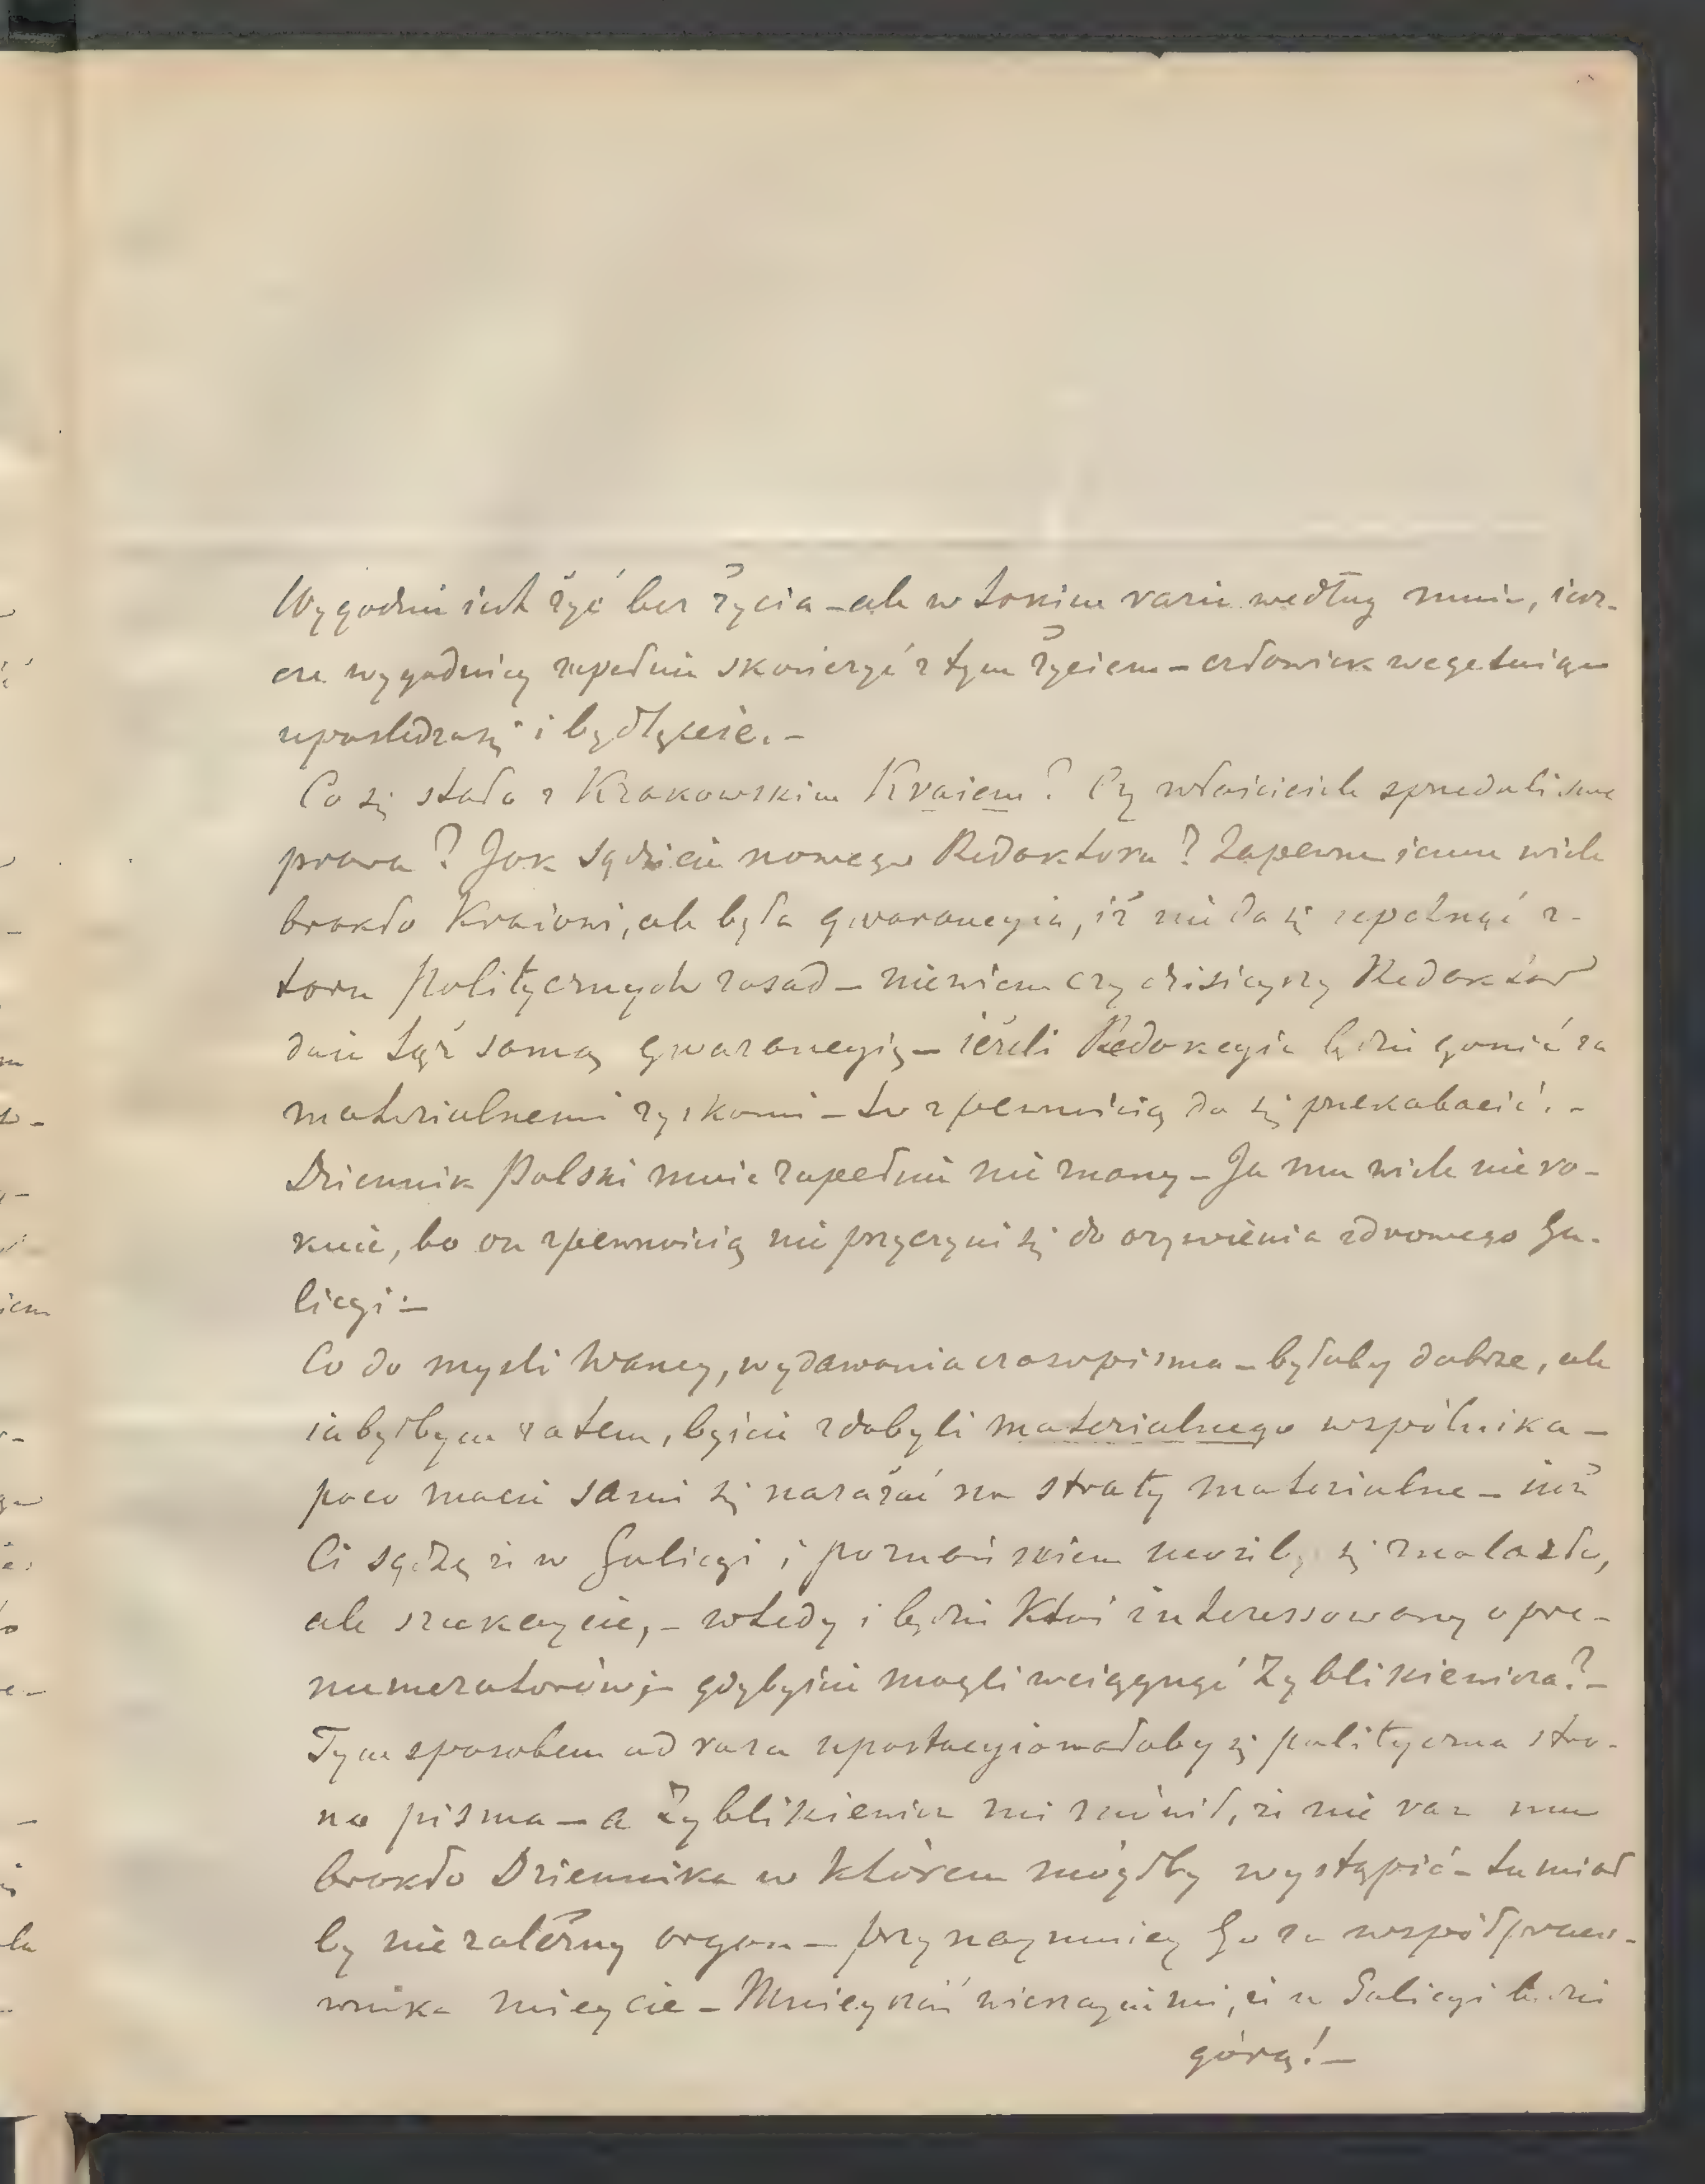 Wygodnie jest żyć bez życia – ale w takim razie według mnie, jesz-
cze wygodniej zupełnie skończyć z tym życiem – człowiek wegetując
upośledza się i bydlęcieje. –
Co się stało z Krakowskim Krajem? Czy właściciele sprzedali swe
prawa? Jak sądzicie nowego Redaktora? Zapewne jemu wiele
brakło Krajowi, ale była gwarancyja, iż nie da się zepchnąć z
toru politycznych zasad – niewiem czy dzisiejszy Redaktor
daje tęż samą gwarancyję – jeżeli Redakcyja będzie gonić za
materialnemi zyskami – to z pewnością da się przekabacić. –
Dziennik Polski mnie zupełnie nie znany – Ja mu wiele nie ro-
kuję, bo on z pewnością nie przyczyni się do ożywienia zdrowego Ga-
licyi: –
Co do myśli Waszej, wydawania czasopisma – byłoby dobrze, ale
ja byłbym zatem, byście zdobyli materialnego wspólnika –
poco macie sami się narażać na straty materialne –
Ci sądzę że w Galicyi i poznańskiem się znalazło,
ale szukajcie, – wtedy i będzie Ktoś interessowany o pre-
numeratorów; – gdybyście mogli wciągnąć Zyblikiewicza? –
Tym sposobem od razu upostacyjowałaby się polityczna stro-
na pisma – a Zyblikiewicz mi mówił, że nie raz mu
brakło Dziennika w którem mógłby wystąpić – tu miał
by niezależny organ – przynajmniej Go za współpraco-
wnika miejcie – Mniejszość nieszczęściem, że w Galicyi ludzi
górą! –